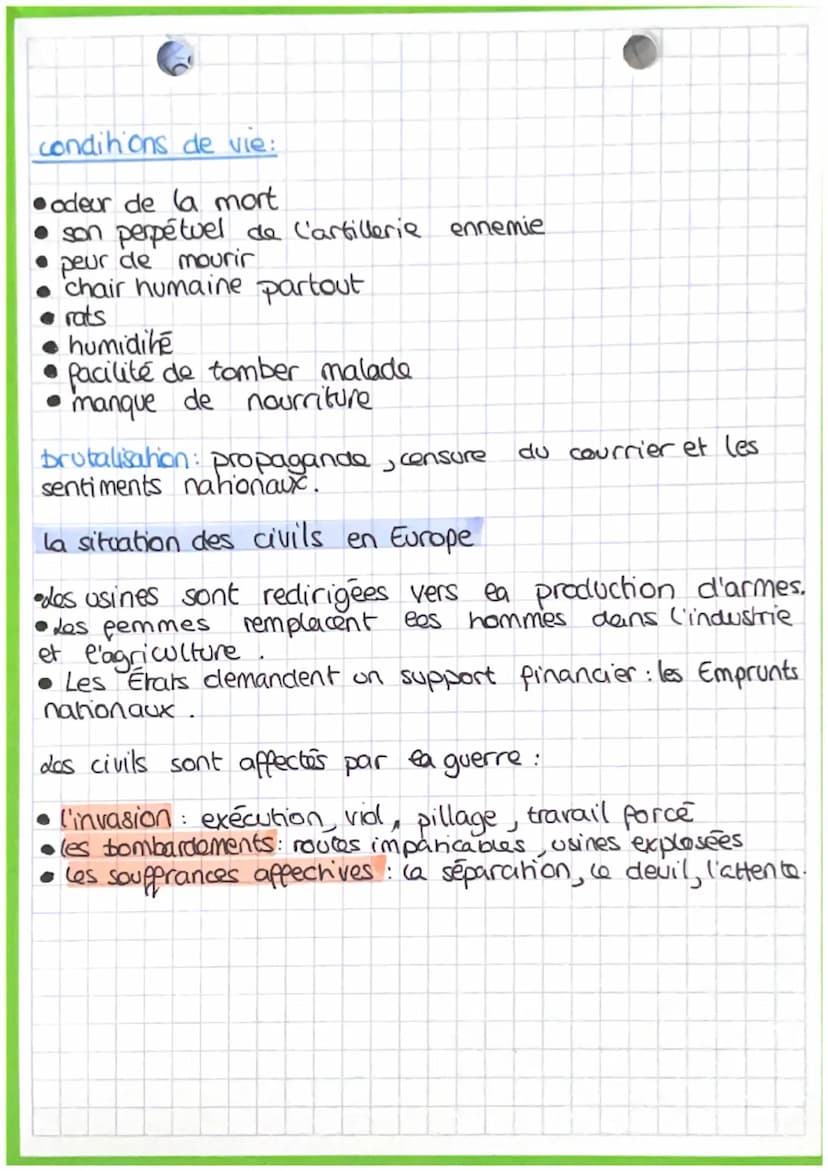 conditions de vie:
• odeur de la mort
• son perpétuel de l'artillerie ennemie
• peur de mourir
• chair humaine partout
• rats
• humidité
• facilité de tomber malade
• manque de nourriture
brutalisation: propagande, censure du courrier et les
sentiments nationaux.
la situation des civils en Europe
• Les usines sont redirigées vers la production d'armes.
• Les femmes remplacent les hommes dans l'industrie
et l'agriculture.
• Les États demandent un support financier : les Emprunts
nationaux.
Les civils sont affectés par la guerre :
• l'invasion : exécution, viol, pillage, travail forcé
• les bombardements : routes impraticables, usines explosées
• Les souffrances affectives : la séparation, le deuil, l'attente.